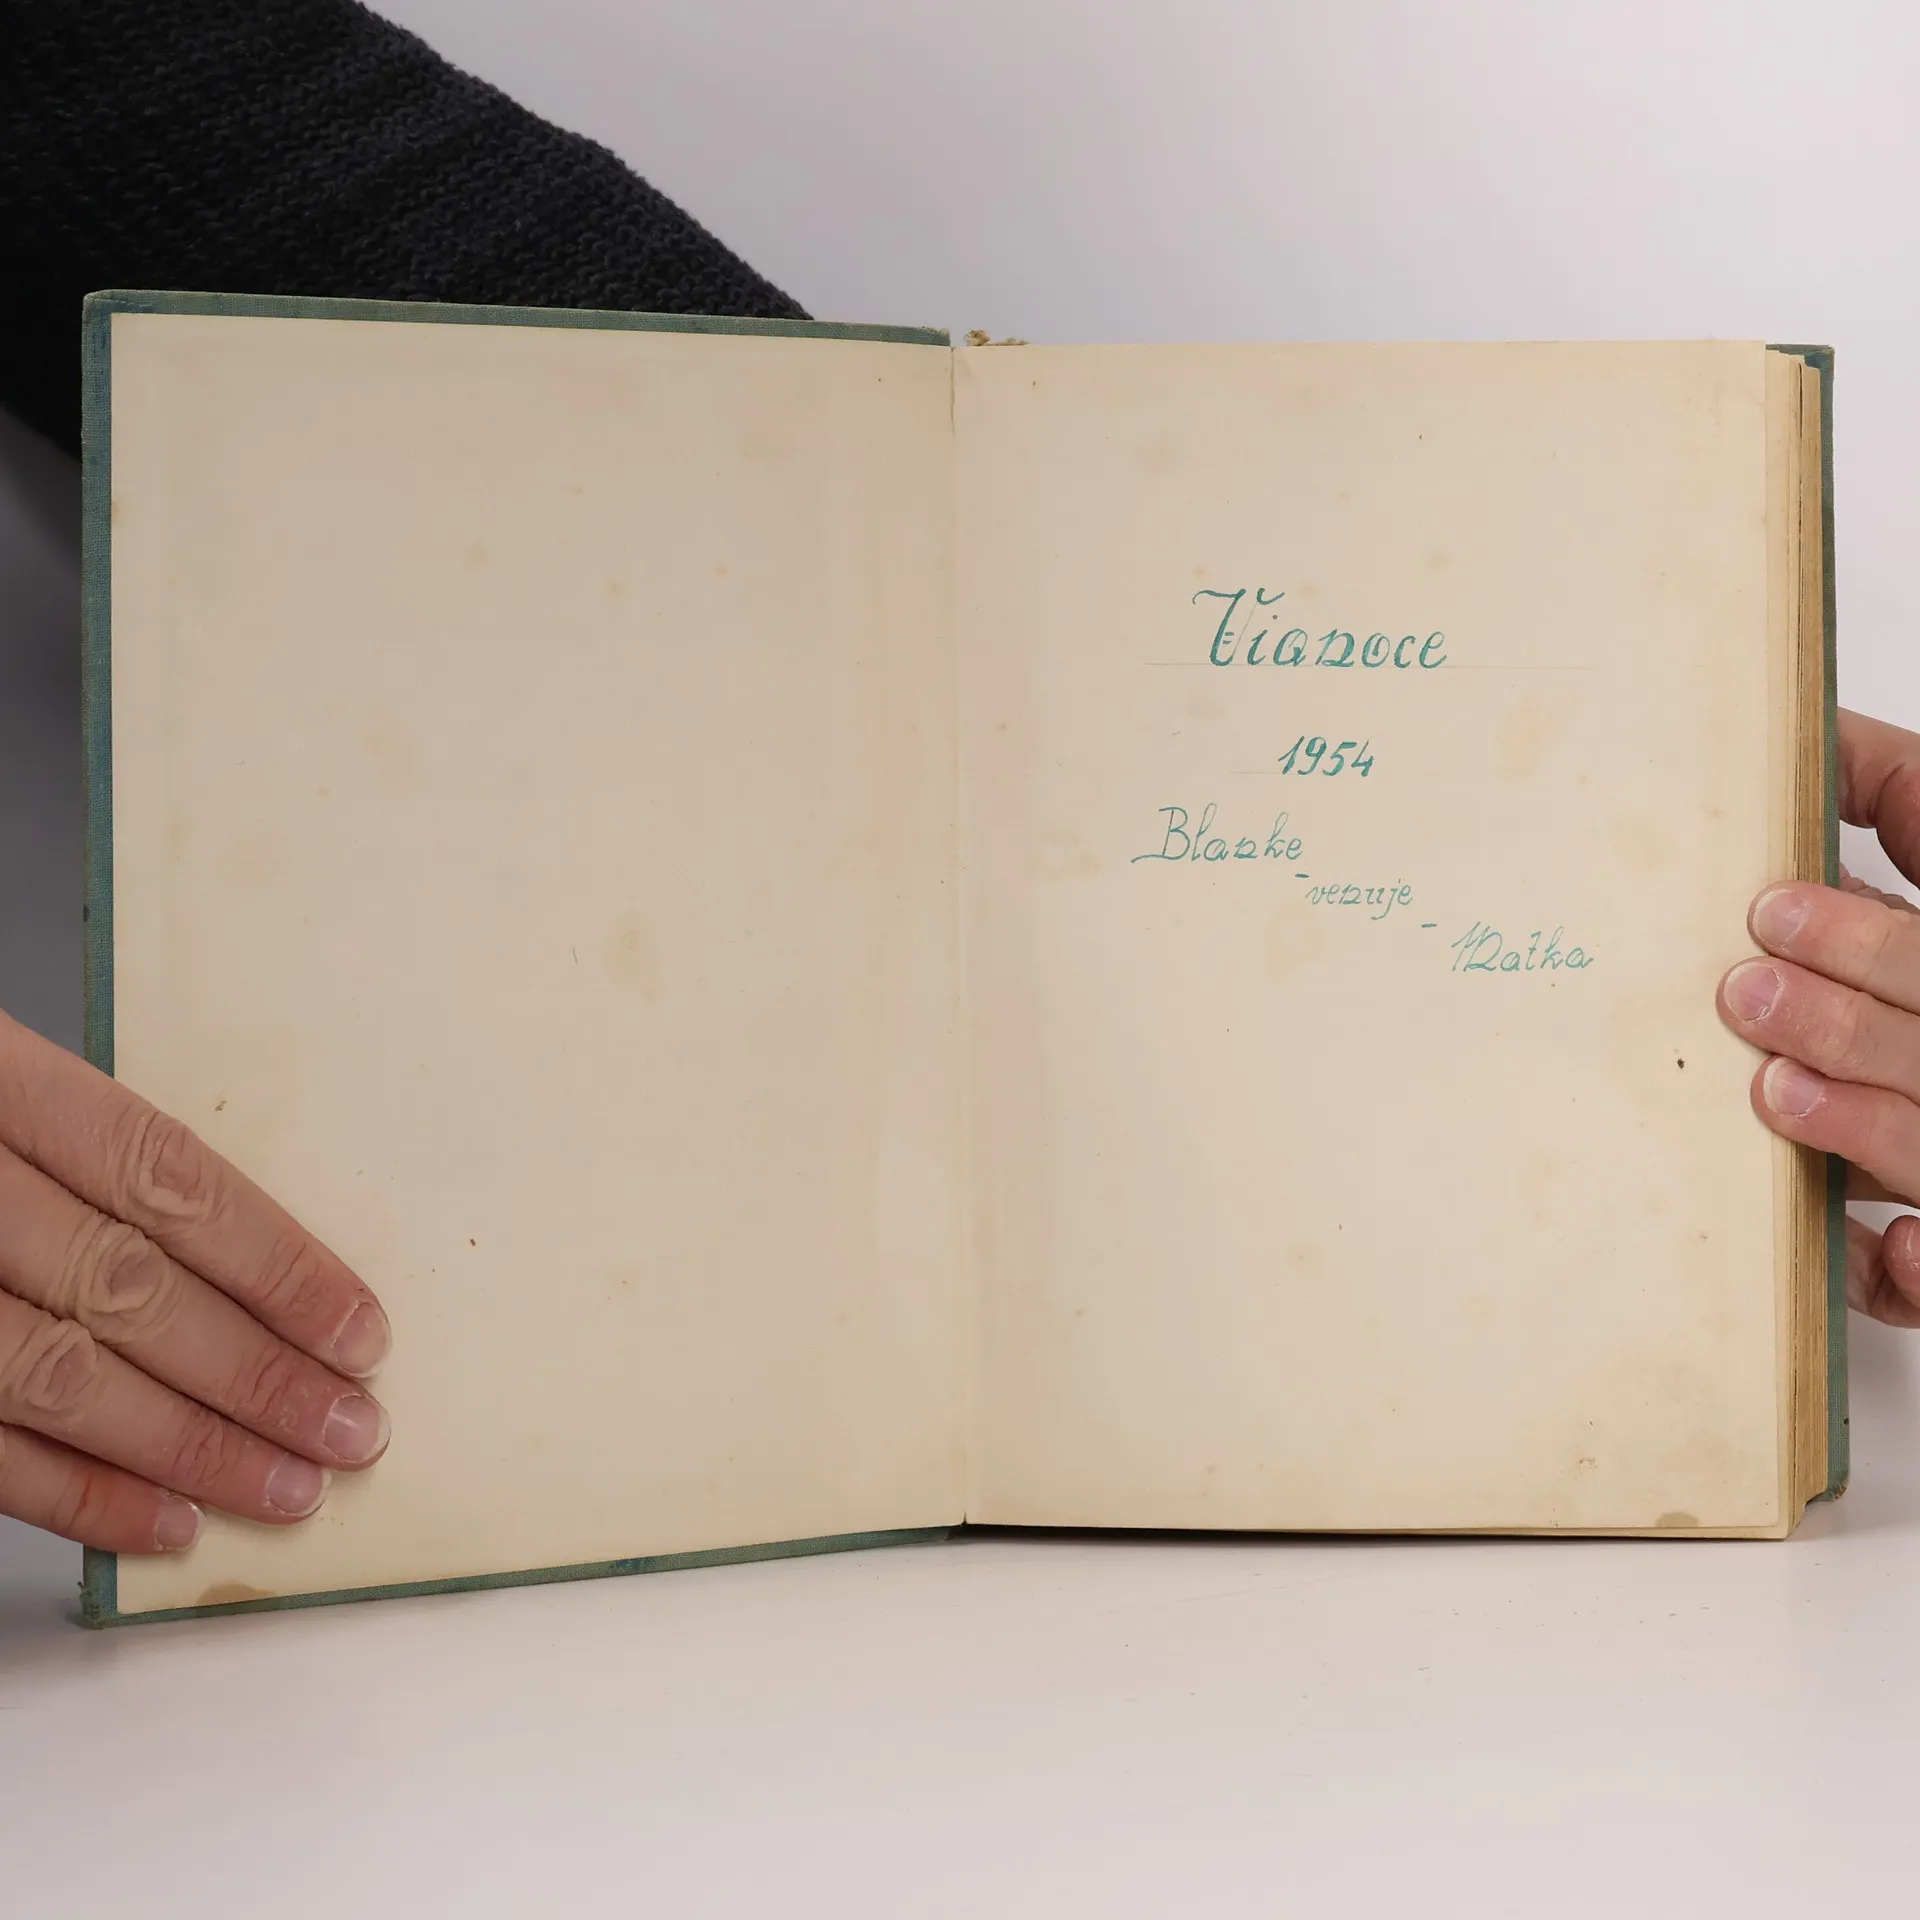 Vianoce
1954
Blanke
- venuje
- Maťka